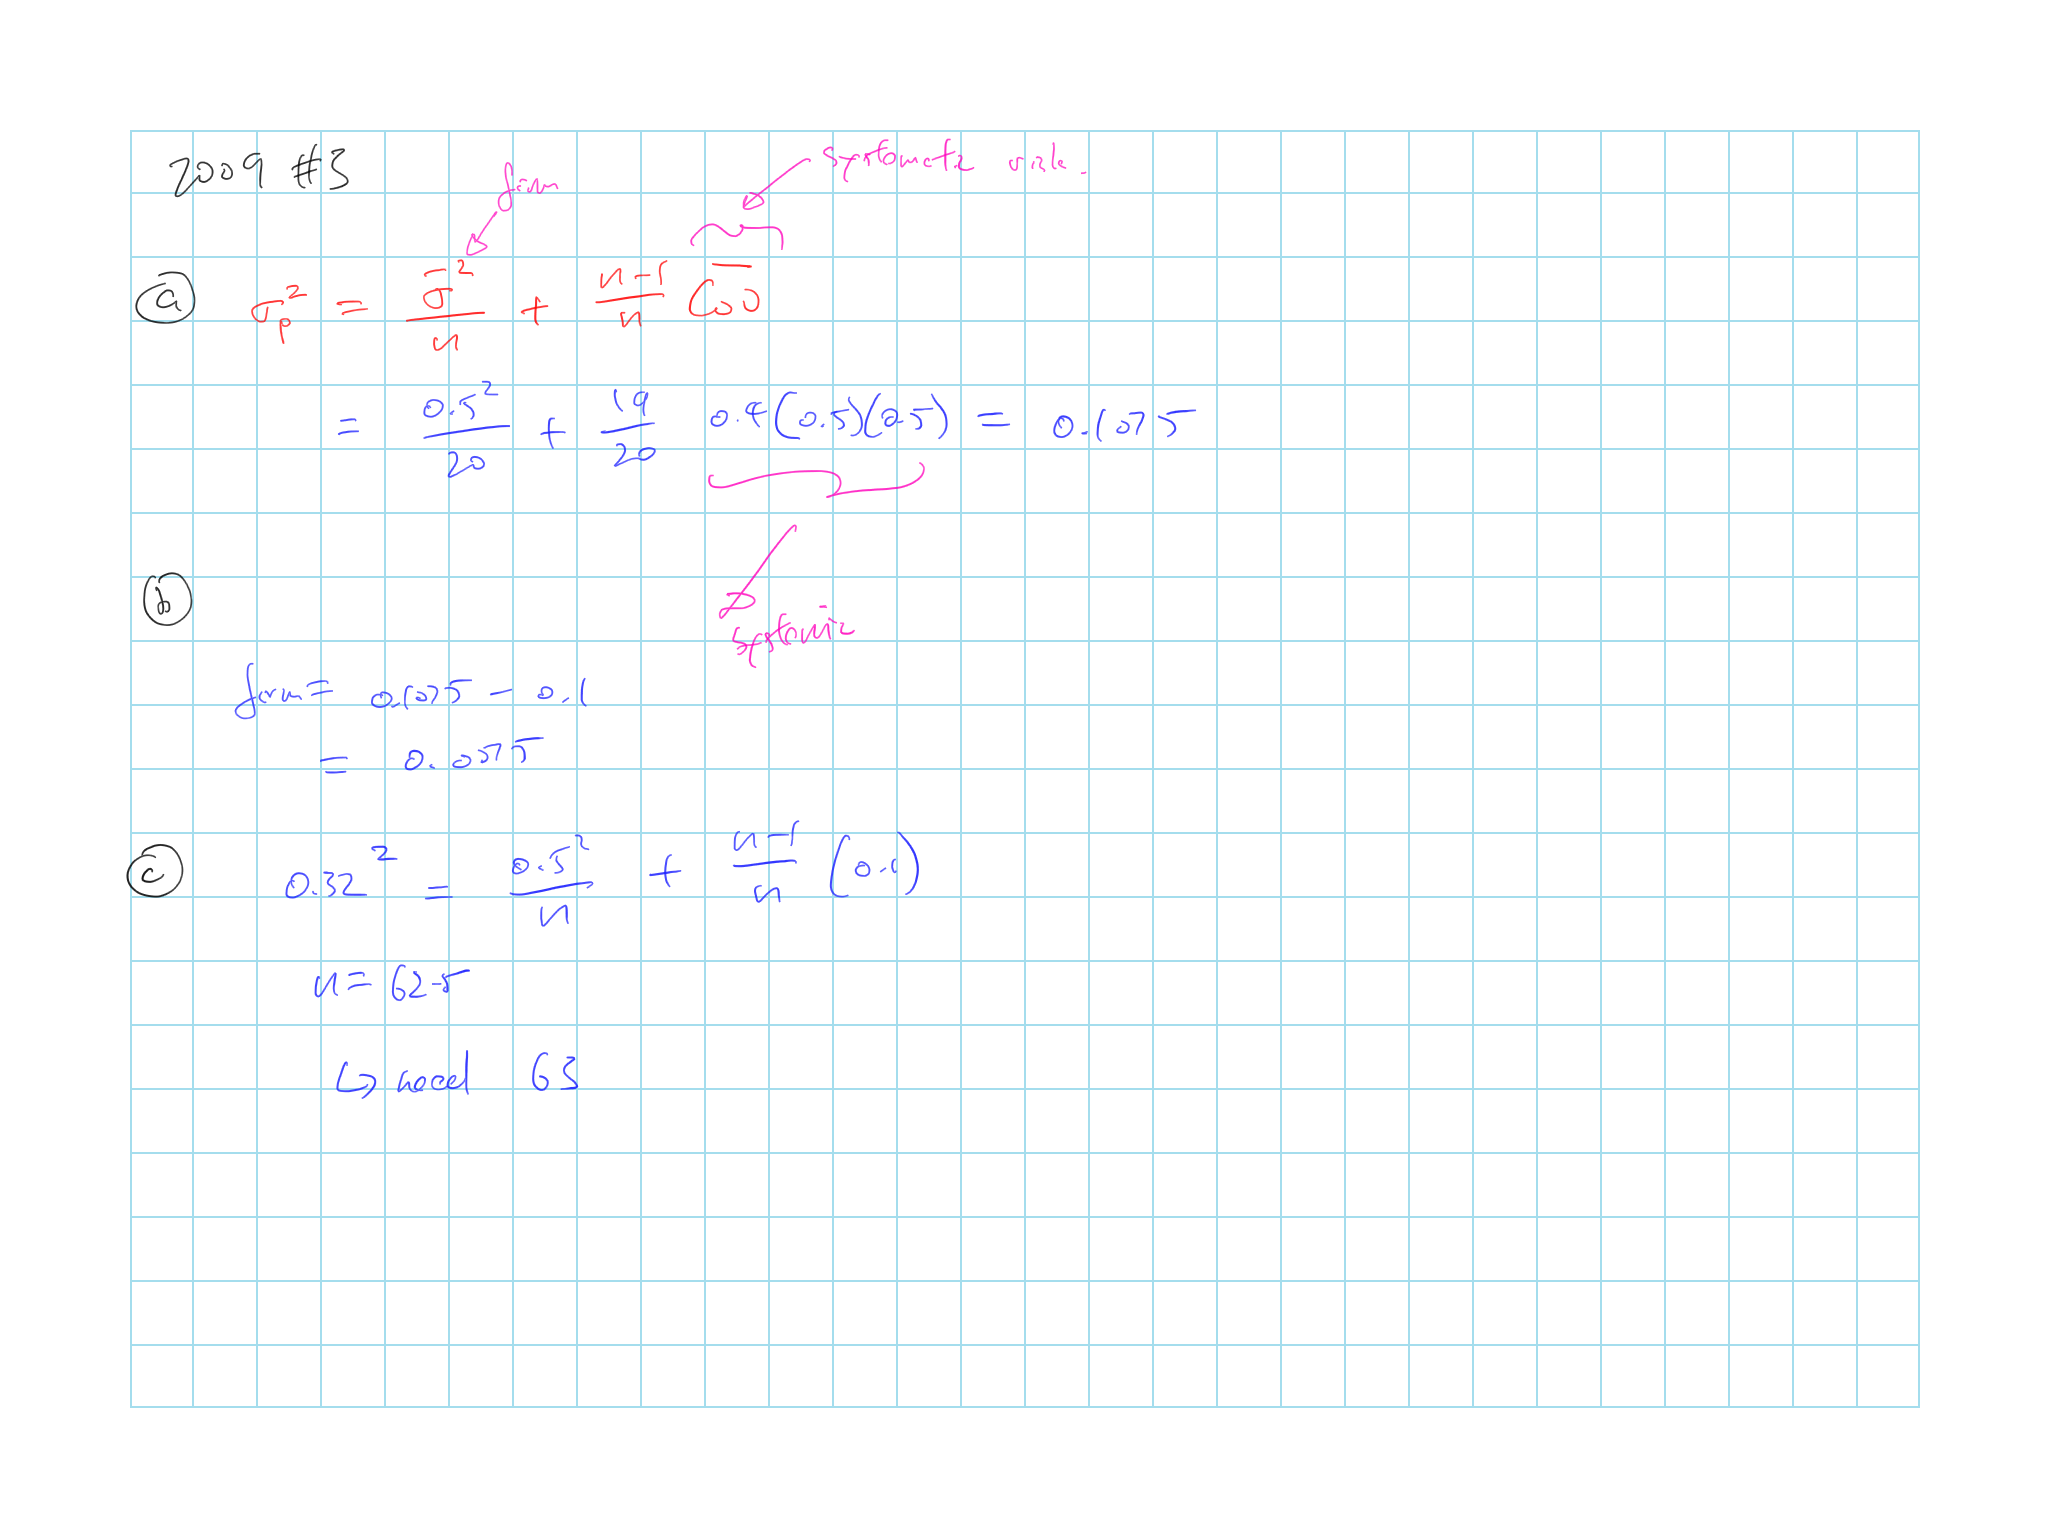 2009 #3
firm
systematic risk.
(a) σp² = σ̄²/n + (n-1)/n C̅o̅v̅
= 0.5²/20 + 19/20 0.4(0.5)(0.5) = 0.1075
(b)
systemic
firm = 0.1075 - 0.1
= 0.0075
(c) 0.32² = 0.5²/n + (n-1)/n (0.1)
n = 62.5
↳ need 63